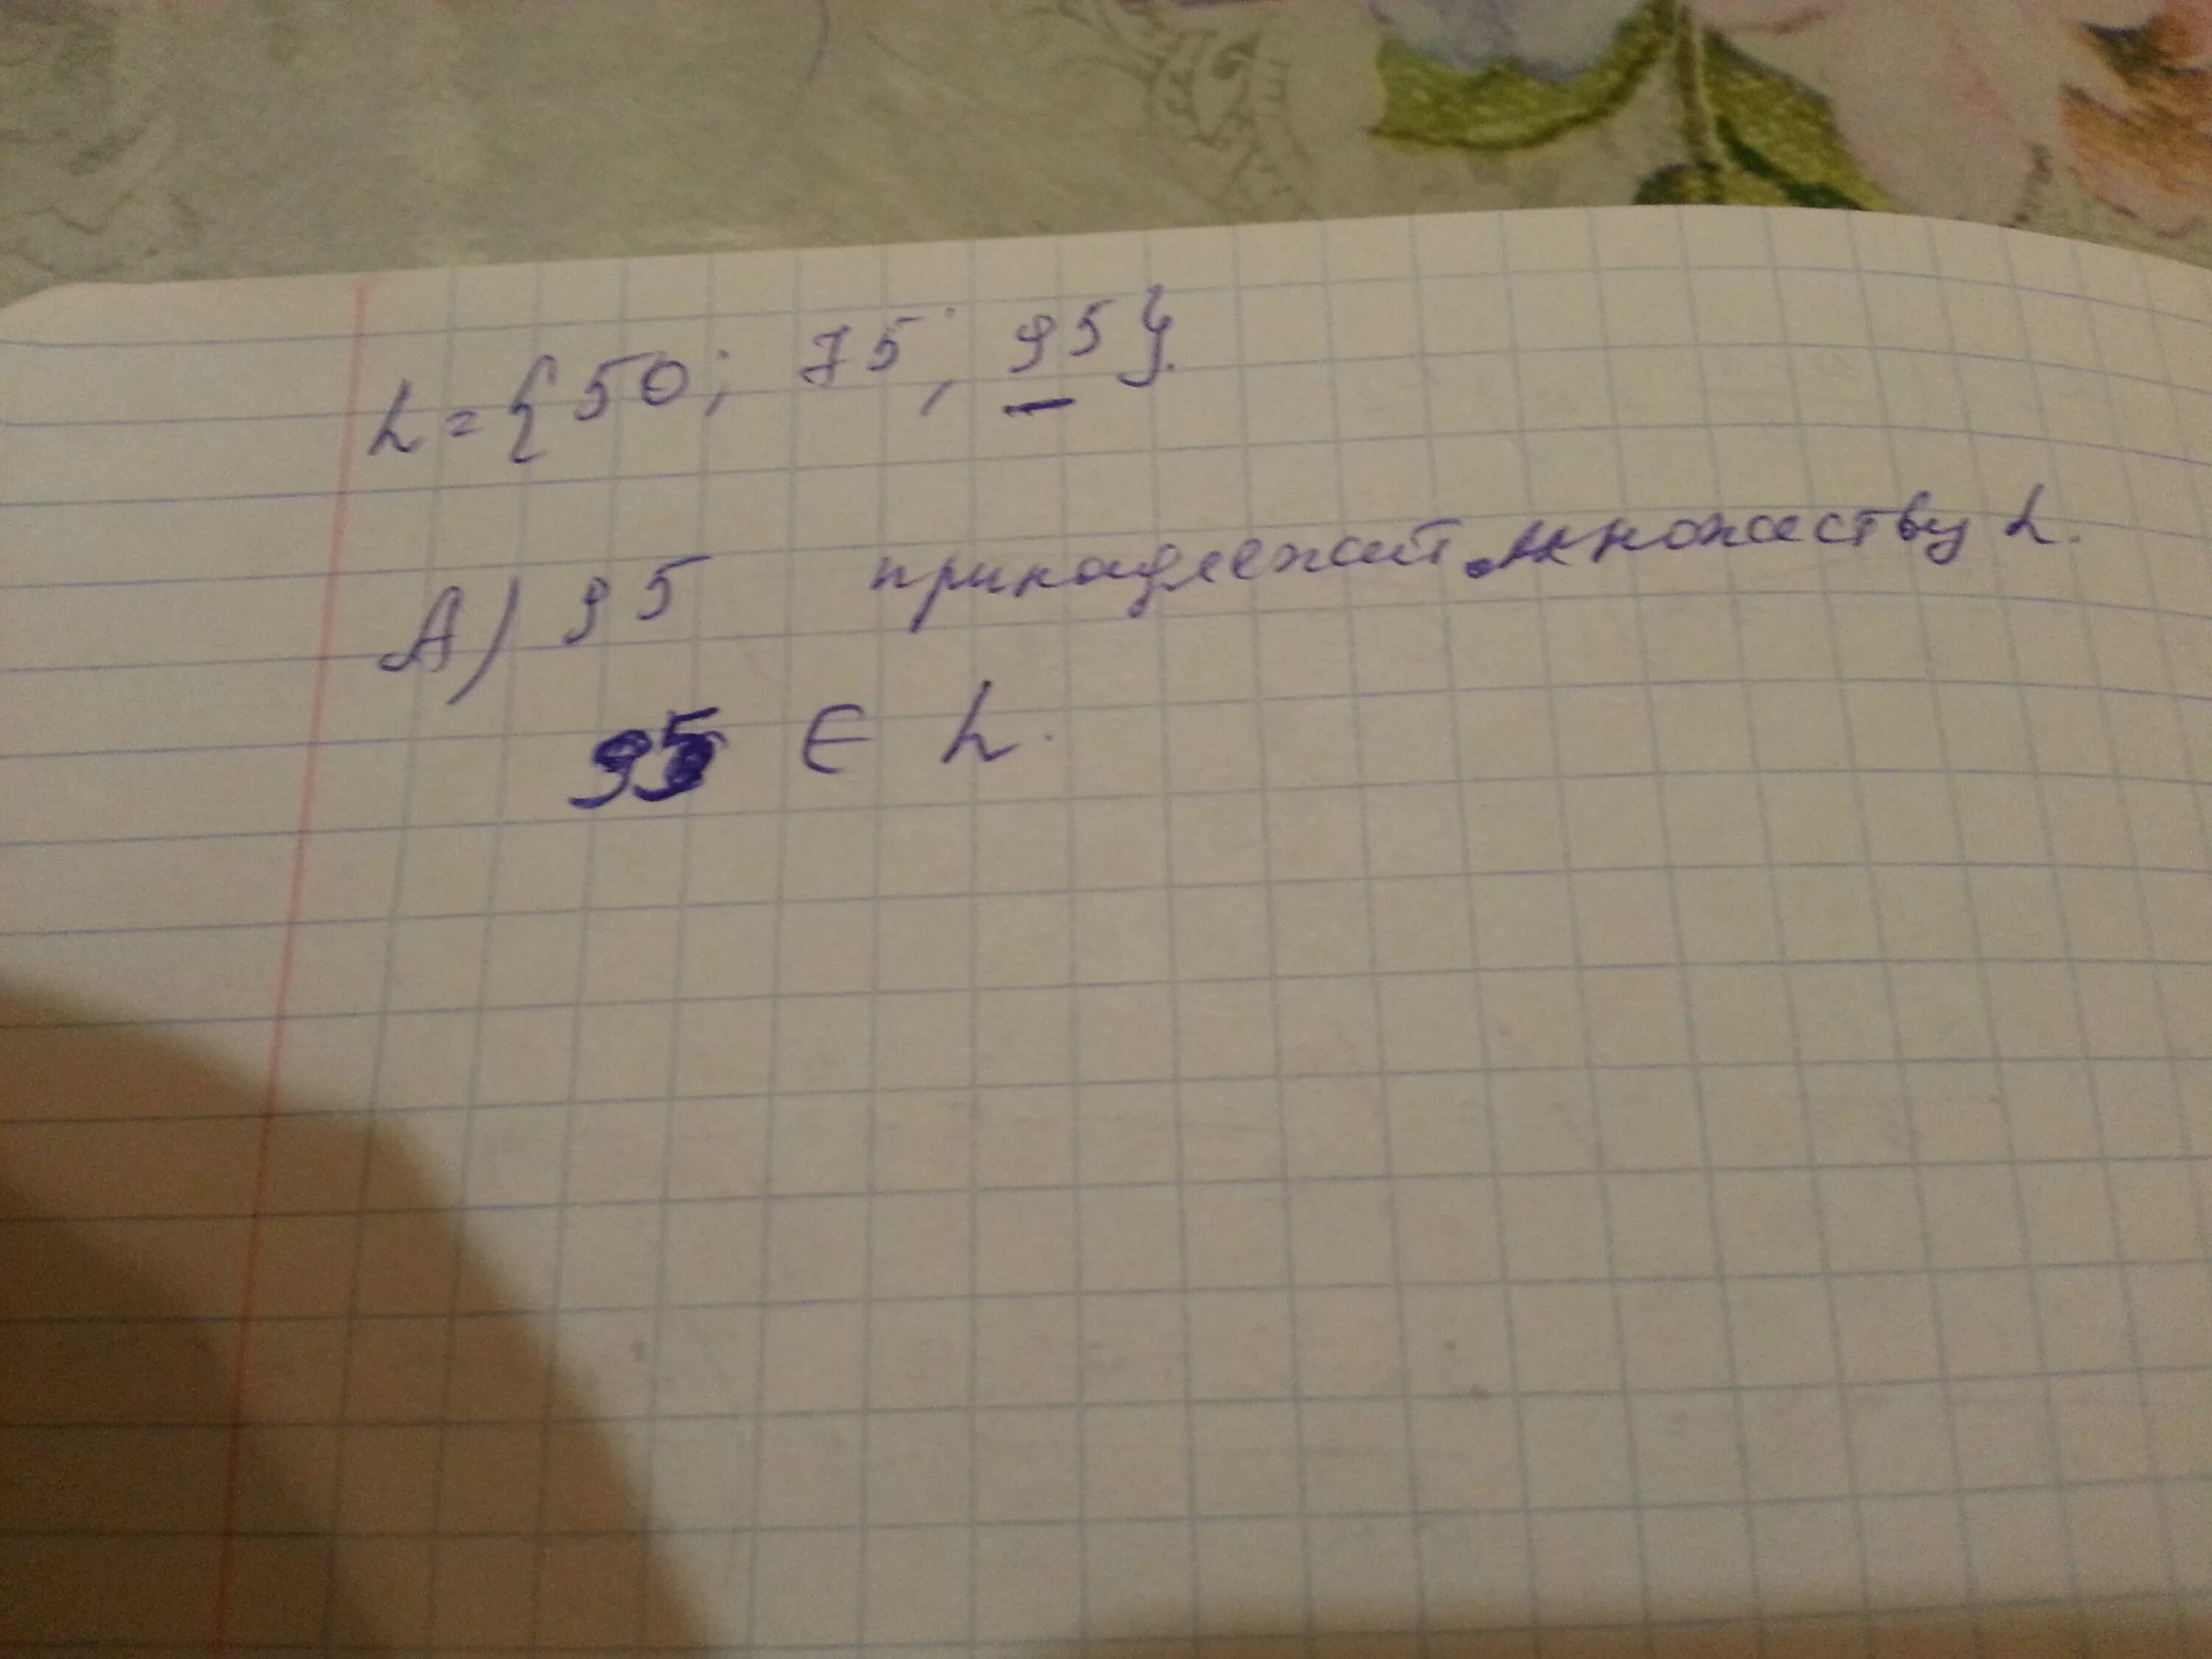 L = {50; 75; 95}.
А) 95 принадлежит множеству L.
95 ∈ L.